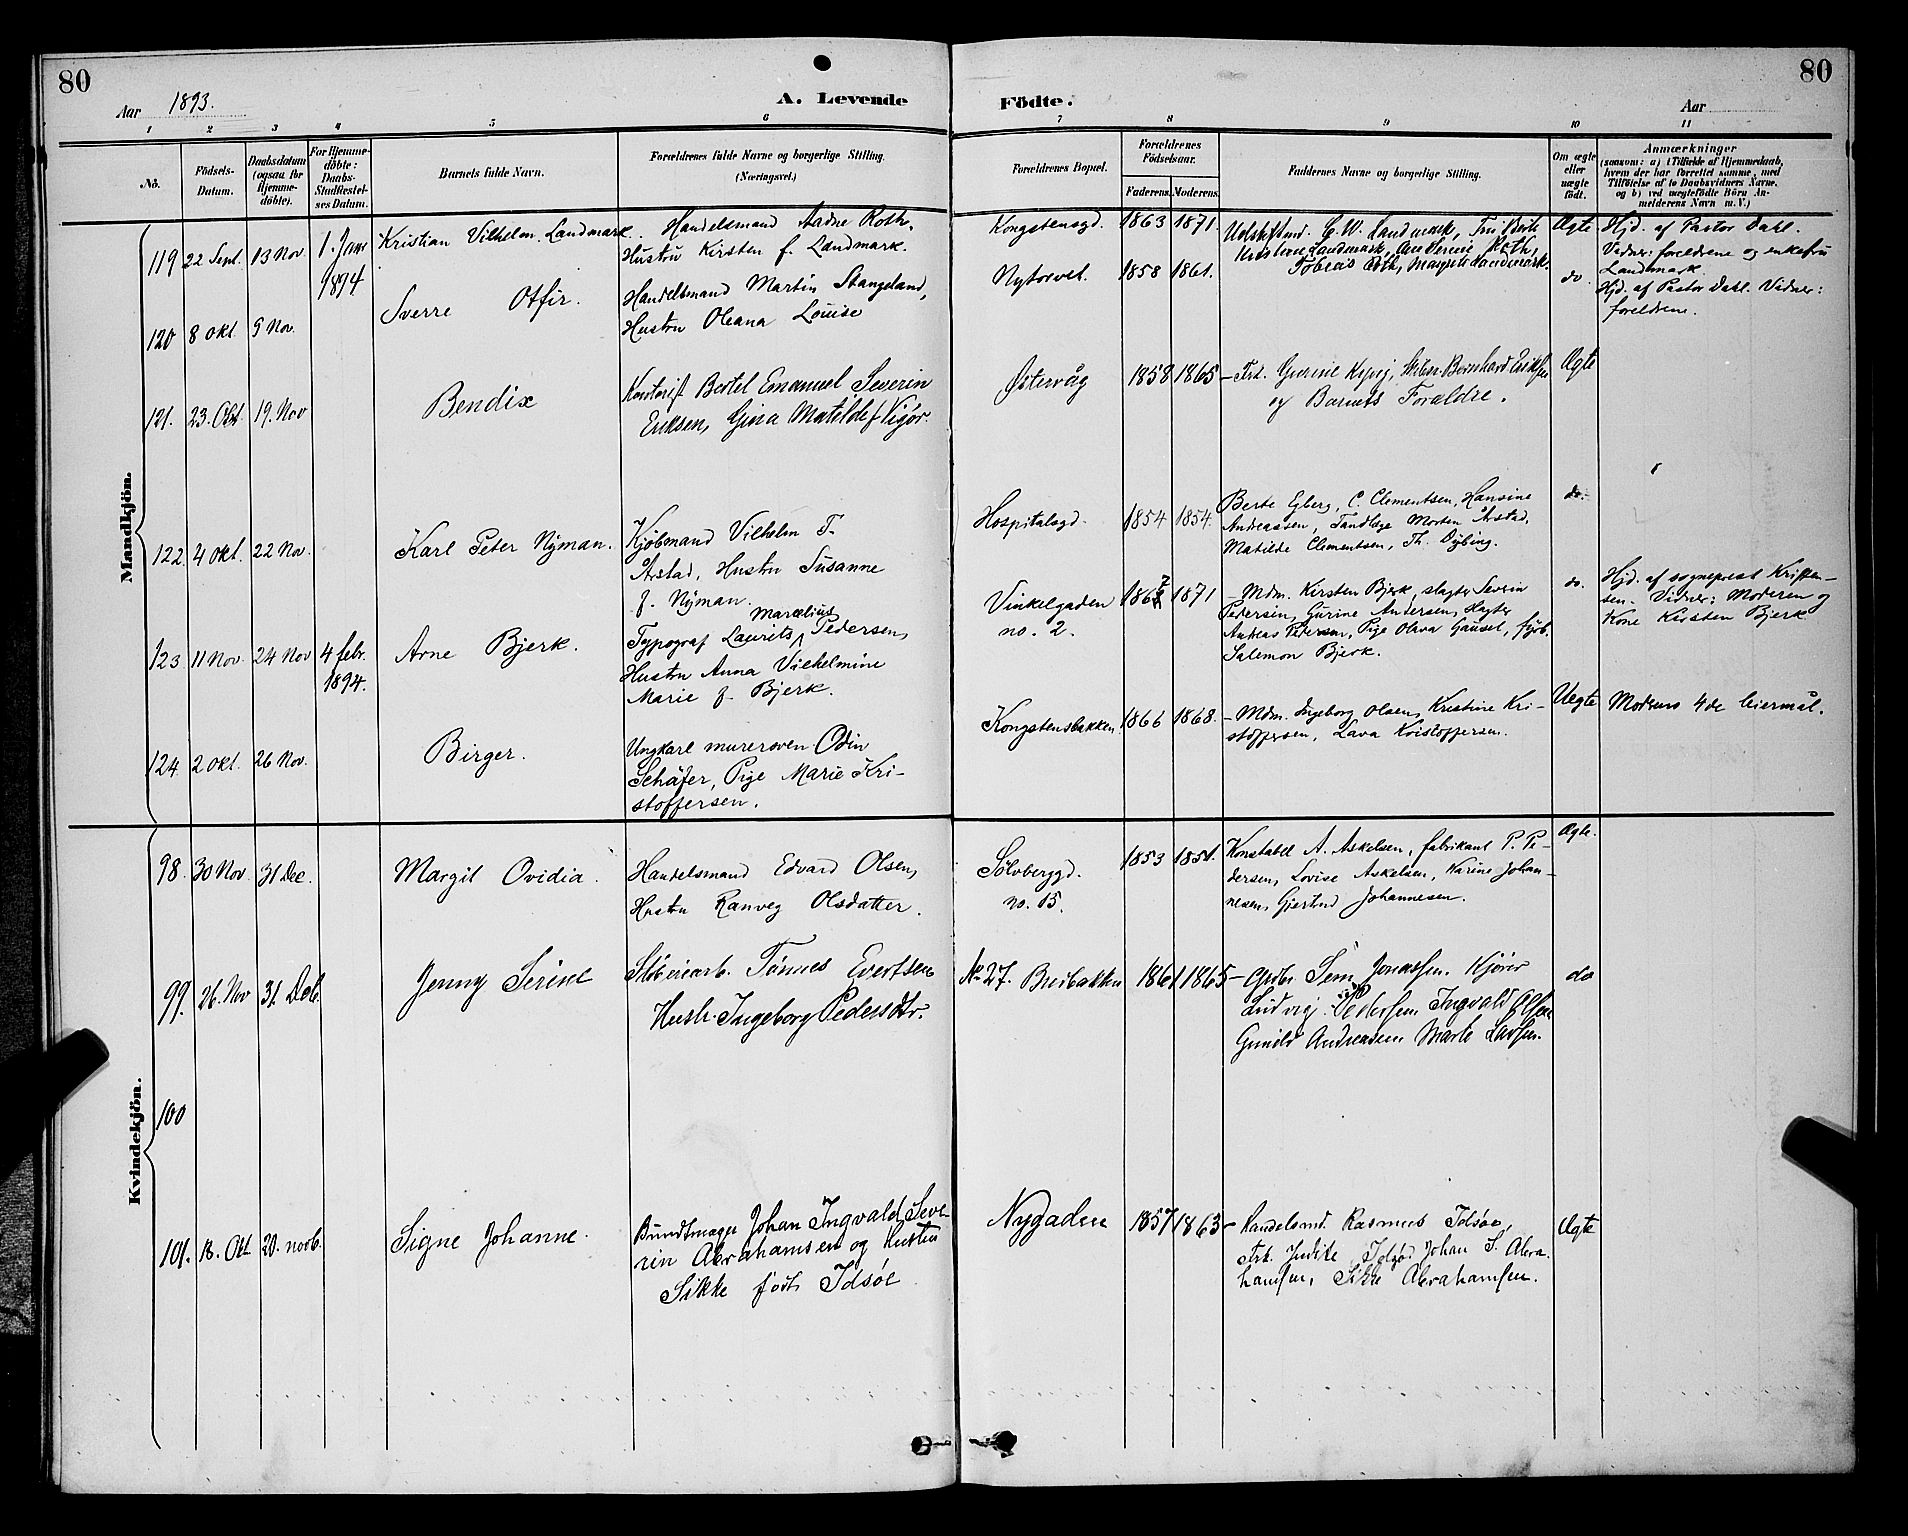 80
80
Aar 1893.
A. Levende Födte.
Aar
1 2 3 4 5 6 7 8 9 10 11
No.
Födsels-Datum.
Daabsdatum (ogsaa for Hjemme-döbte).
For Hjemme-döbte: Daabs-Stadfæstel-ses Datum.
Barnets fulde Navn.
Forældrenes fulde Navne og borgerlige Stilling. (Næringsvei.)
Forældrenes Bopæl.
Forældrenes Födselsaar.
Faderens. Moderens.
Faddernes Navne og borgerlige Stilling.
Om ægte eller uægte födt.
Anmærkninger
(saasom: a) i Tilfælde af Hjemmedaab, hvem der har forrettet samme, med Tilföielse af to Daabsvidners Navne, og b) ved uægtefödte Börn An-melderens Navn m. V.)
Mandkjön.
119 22 Sept. 13 Nov 1. Jan 1894
Kristian Vilhelm Landmark.
Handelsmand Aadne Roth.
Hustru Kirsten f. Landmark.
Kongstensgd. 1863 1871
C. W. Landmark,
Landmark,
Tobias Roth, Margrete Landmark.
Ægte
Hjd. af Pastor Dahl.
Vidner: foreldrene og enkefru
Landmark.
120 8 okt. 9 Nov.
Sverre Otfir.
Handelsmand Martin Stangeland,
Hustru Oleana Louise
Nytorvet. 1858 1861.
do
Hjd. af Pastor Dahl. Vidner:
foreldrene.
121. 23. Okt 19. Nov
Bendix
Kontorist Bertel Emanuel Severin
Eriksen, Gina Matilde f Vigør.
Østervåg 1858 1865
Frk. Gurine Bernhard Eriksen
og Barnets Forældre.
Ægte
122. 4 okt. 22 Nov.
Karl Peter Nyman.
Kjøbmand Vilhelm T.
Årstad, Hustru Susanne
f. Nyman.
Hospitalsgd. 1854 1854.
Berte Egberg, C. Clementsen, Hansine
Andreassen, Tandlæge Morten Årstad,
Matilde Clementsen, Th. Dybing.
do.
123 11 Nov. 24 Nov 4 febr. 1894.
Arne Bjerk.
Marcelius
Typograf Laurits Pedersen,
Hustru Anna Vilhelmine
Marie f. Bjerk.
Vinkelgaden
no. 2.
1867 1871
Mdm. Kirsten Bjerk, slagter Severin
Pedersen, Gurine Andersen, slagter
Andreas Pedersen, Pige Olava Gausel, fyrb.
Salemon Bjerk.
do.
Hjd. af sogneprest Kristen-
sen. Vidner: Moderen og
Kone Kirsten Bjerk
124. 2 okt. 26 Nov.
Birger.
Ungkarl murersven Odin
Schäfer, Pige Marie Kri-
stoffersen.
Kongstensbakken 1866 1868.
Mdm. Ingeborg Olsen, Kristine Kri-
stoffersen, Lava Kristoffersen.
Uegte
Moderens 4de leiermål.
Kvindekjön.
98. 30 Nov. 31 Dec.
Margit Ovidia.
Handelsmand Edvard Olsen,
Hustru Ranveg Olsdatter.
Sølvberggd.
no. 15.
1853 1851.
Konstabel A. Askelsen, fabrikant P. Pe-
dersen, Lovise Askelsen, Karine Johan-
nesen, Gjertrud Johannesen.
Ægte.
99. 26. Nov 31 Deb
Jenny Serine
Støberiarb. Tønnes Evertsen
Hustr. Ingeborg Pedersdtr.
No 27. Bredbakken 1861 1865
Jonassen. Kjører
Ludvig Pedersen Ingvald Olsen
Gunild Andreasen Marte Larsen.
do
100
101. 18. Okt 20. novb.
Signe Johanne.
Bundtmager Johan Ingvald Seve
rin Abrahamsen og Hustru
Sikke født Idsøe
Nygaden 1857 1863
Handelsmd. Rasmus Idsøe,
Frk. Judite Idsøe Johan S. Abra
hamsen, Sikke Abrahamsen.
Ægte